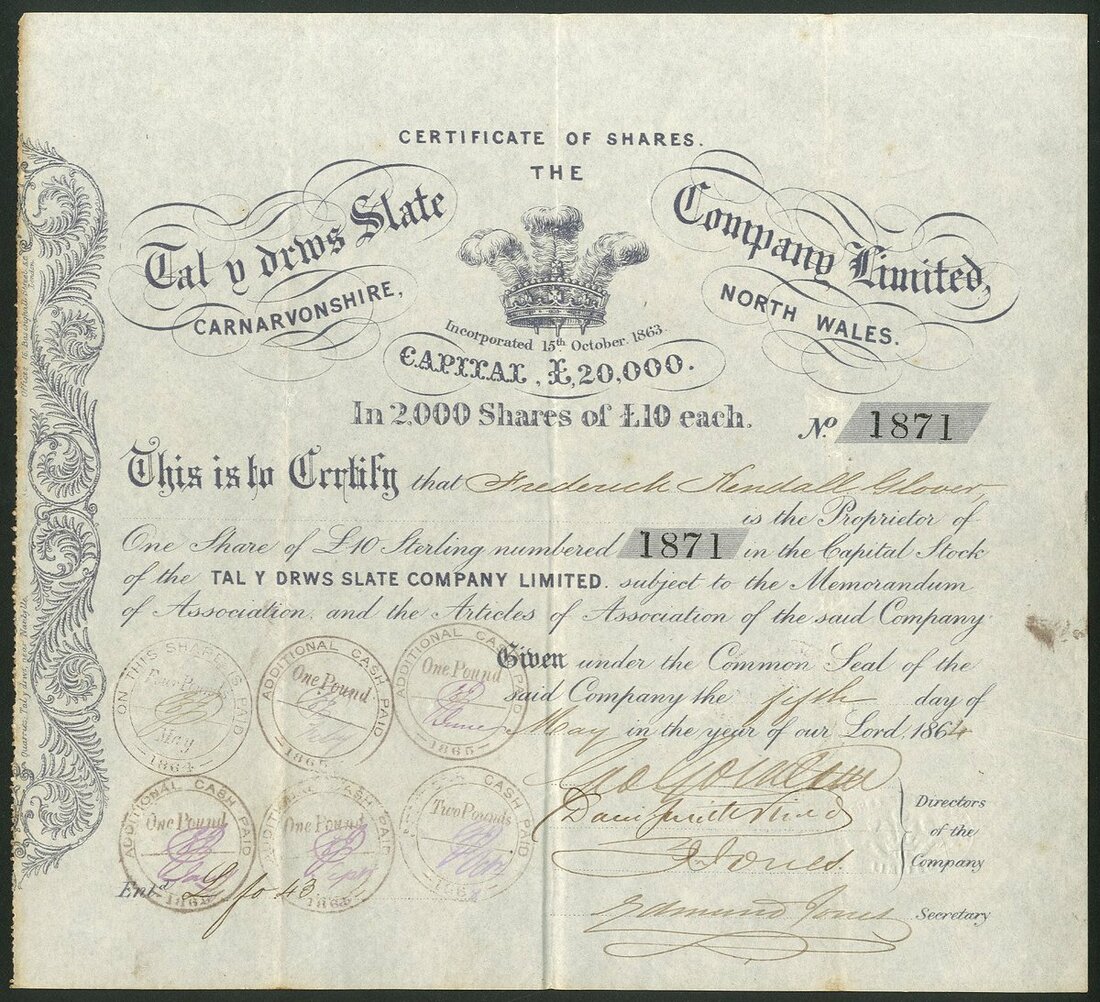 CERTIFICATE OF SHARES.
THE
Tal y drws Slate Company Limited,
CARNARVONSHIRE, NORTH WALES.
Incorporated 15th October 1863
CAPITAL, £20,000.
In 2,000 Shares of £10 each.
No. 1871
This is to Certify that Frederick Kendall Glover,
is the Proprietor of
One Share of £10 Sterling numbered 1871 in the Capital Stock
of the TAL Y DRWS SLATE COMPANY LIMITED. subject to the Memorandum
of Association. and the Articles of Association of the said Company
Given under the Common Seal of the
said Company the fifth day of
May in the year of our Lord 1864
ON THIS SHARE IS PAID
Four Pounds
May
1864
ADDITIONAL CASH PAID
One Pound
July
ADDITIONAL CASH PAID
One Pound
1865
ADDITIONAL CASH PAID
One Pound
ADDITIONAL CASH PAID
One Pound
CASH PAID
Two Pounds
Directors
of the
Company
J. Jones.
Edmund Jones
Secretary
Entd fo 43
Quarries, Tal y drws, near Nantlle.
London.